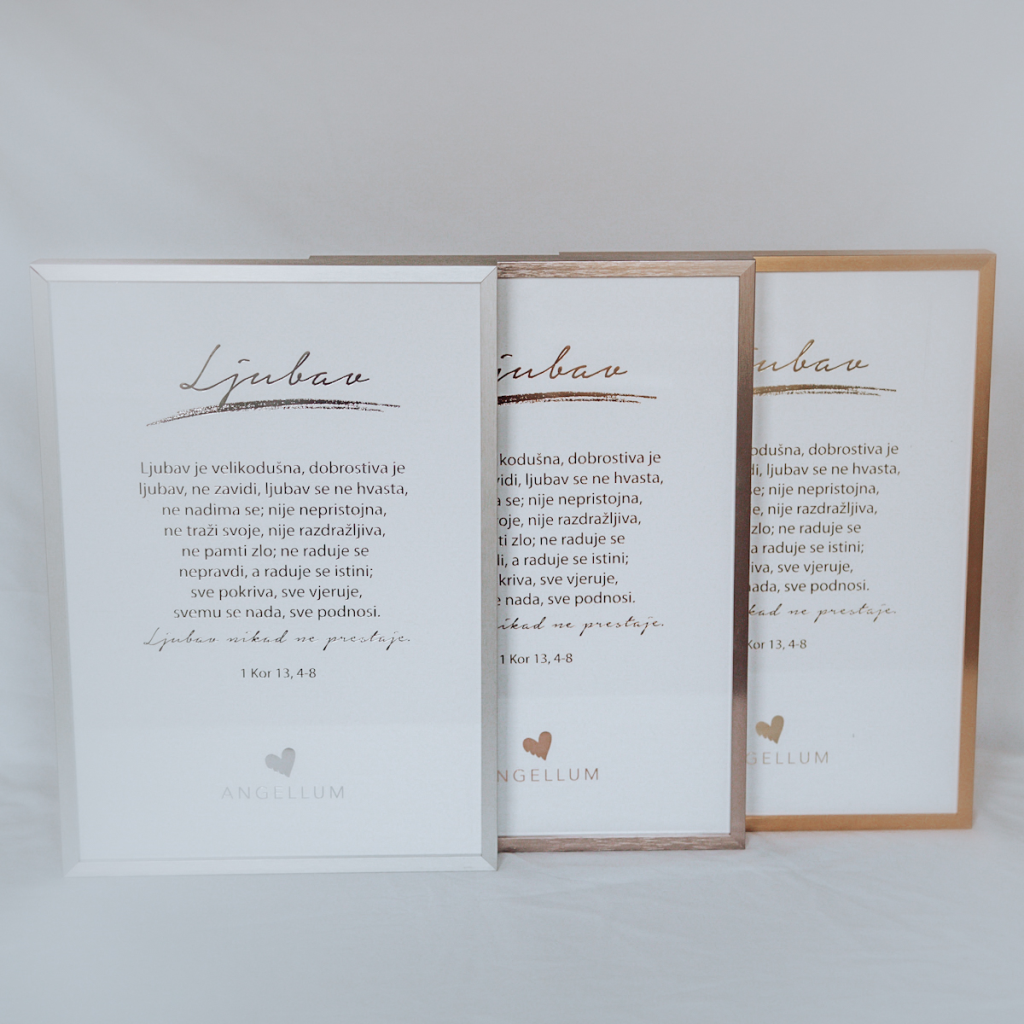 Ljubav
Ljubav je velikodušna, dobrostiva je
ljubav, ne zavidi, ljubav se ne hvasta,
ne nadima se; nije nepristojna,
ne traži svoje, nije razdražljiva,
ne pamti zlo; ne raduje se
nepravdi, a raduje se istini;
sve pokriva, sve vjeruje,
svemu se nada, sve podnosi.
Ljubav nikad ne prestaje.
1 Kor 13, 4-8
ANGELLUM
jubav
kodušna, dobrostiva je
vidi, ljubav se ne hvasta,
a se; nije nepristojna,
oje, nije razdražljiva,
ti zlo; ne raduje se
i, a raduje se istini;
kriva, sve vjeruje,
e nada, sve podnosi.
ikad ne prestaje.
1 Kor 13, 4-8
NGELLUM
jubav
odušna, dobrostiva je
di, ljubav se ne hvasta,
se; nije nepristojna,
e, nije razdražljiva,
zlo; ne raduje se
a raduje se istini;
iva, sve vjeruje,
nada, sve podnosi.
kad ne prestaje.
Kor 13, 4-8
GELLUM